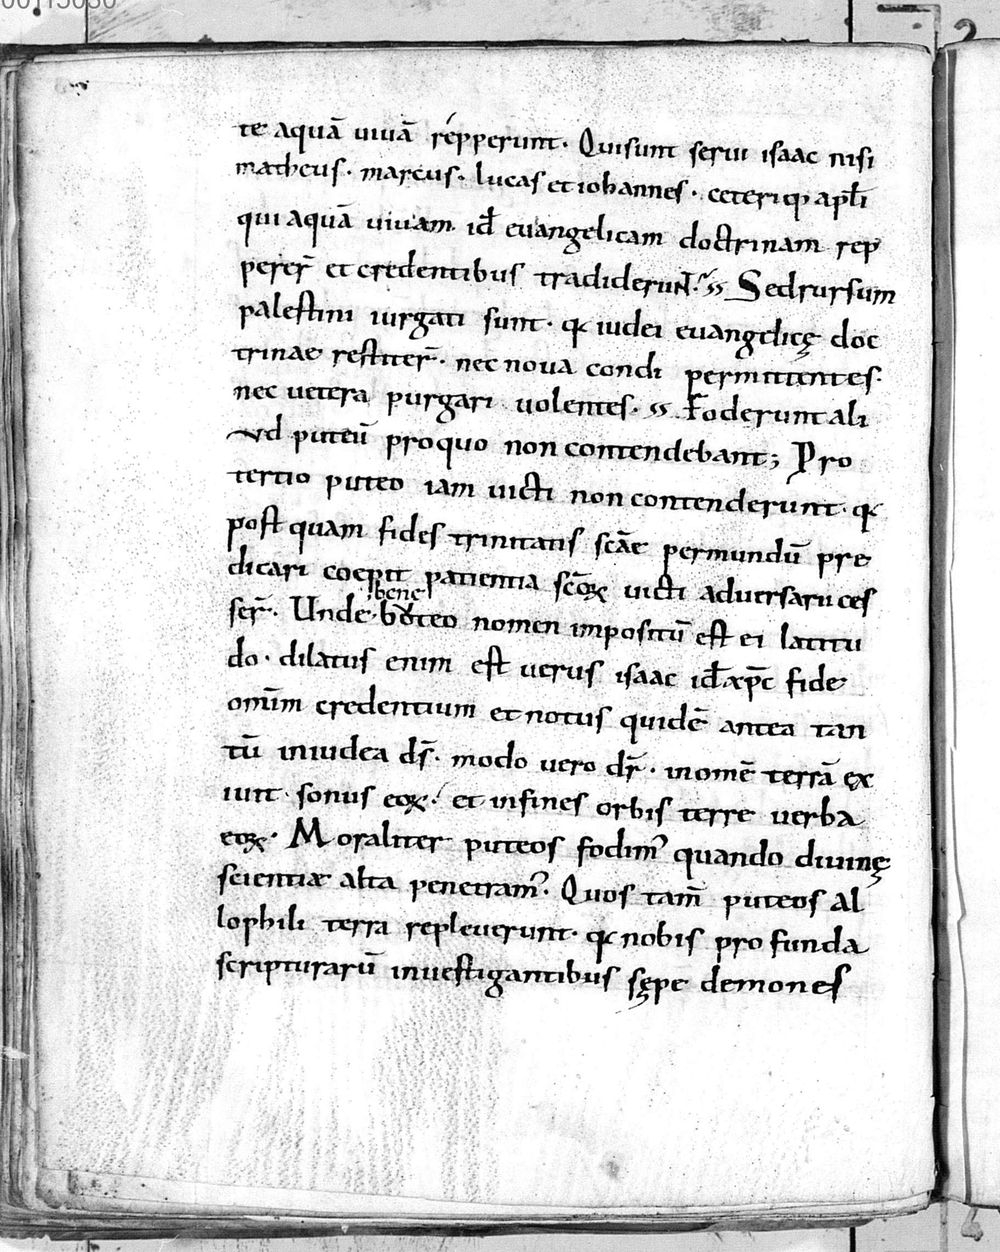 te aquā uiuā répperunt. Qui sunt serui isaac nisi
matheus. marcus. lucas et iohannes. ceteriq; apłi
qui aquā uiuam. id̄ euangelicam doctrinam rep
perer̄ et credentibus tradiderunt. Sed rursum
palestini iurgati sunt. q̄ iudei euangelicę doc
trinae restiter̄. nec noua condi permittentes.
nec uetera purgari uolentes. Foderunt ali
ud puteū pro quo non contendebant; Pro
tertio puteo iam uicti non contenderunt. q̄
post quam fides trinitatis sc̄ae per mundū pre
dicari coepit patientia sc̄oꝝ uicti aduersarii ces
ser̄. Unde bene
puteo nomen impositū est ei latitu
do. dilatus enim est uerus isaac id̄ xp̄c fide
omīm credentium et notus quidē antea tan
tū in iudea ds̄. modo uero dr̄. in omē terrā ex
iuit sonus eoꝝ. et in fines orbis terre uerba
eoꝝ. Moraliter puteos fodim᾽ quando diuinę
scientiæ alta penetram᾽. Quos tam̄ puteos al
lophili terra repleuerunt. q̄ nobis profunda
scripturarū inuestigantibus sępe demones